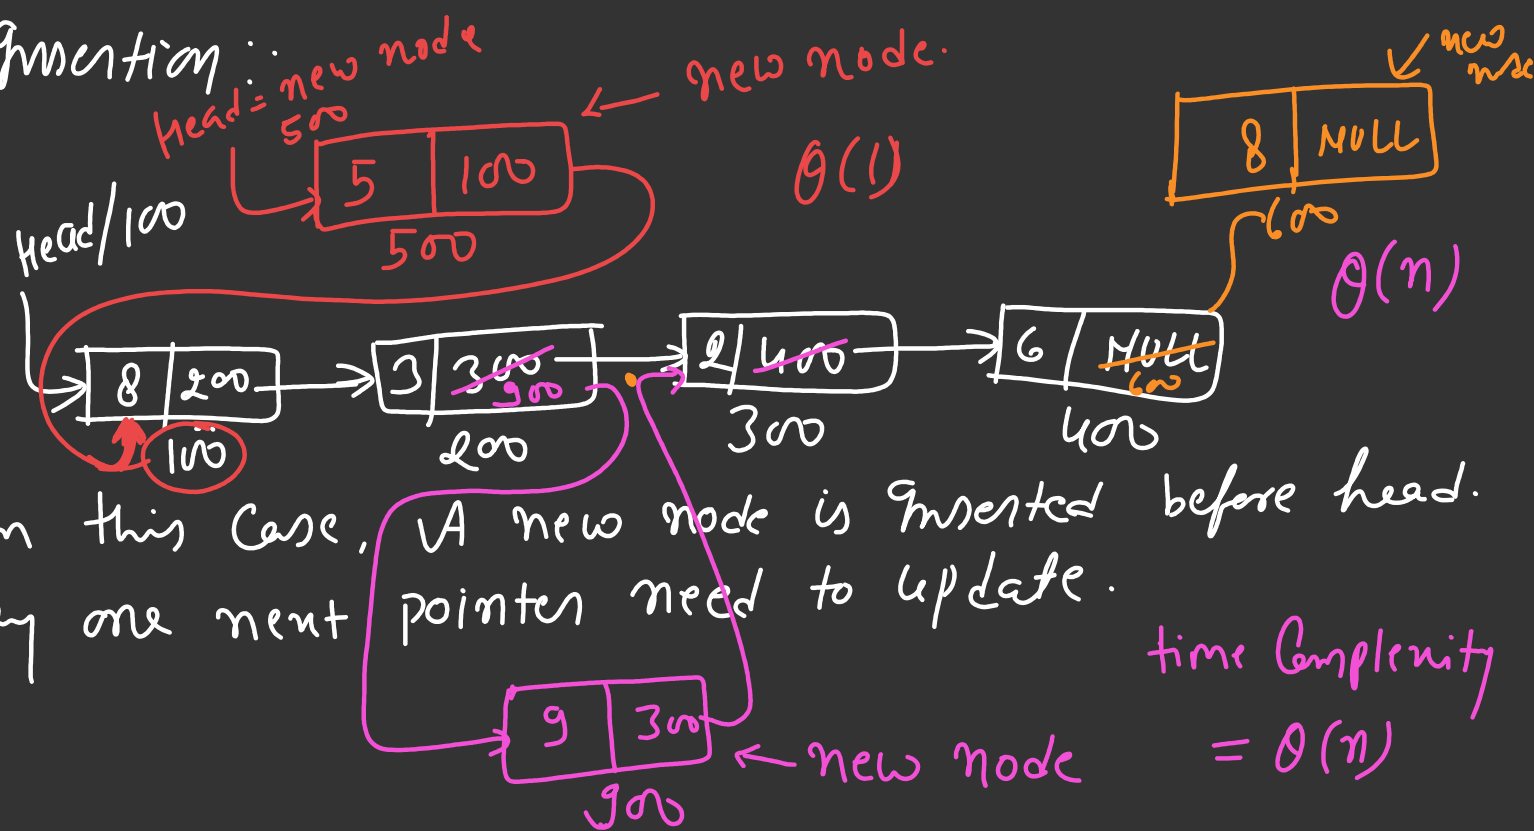 Insertion :
Head = new node
500
new node.
new node
5 100
500
θ(1)
8 NULL
600
θ(n)
Head/100
8 200
100
3 300 900
200
2 400
300
6 NULL 600
400
n this case, A new node is Inserted before head.
y one next pointer need to update.
time Complexity
= θ(n)
9 300
900
new node